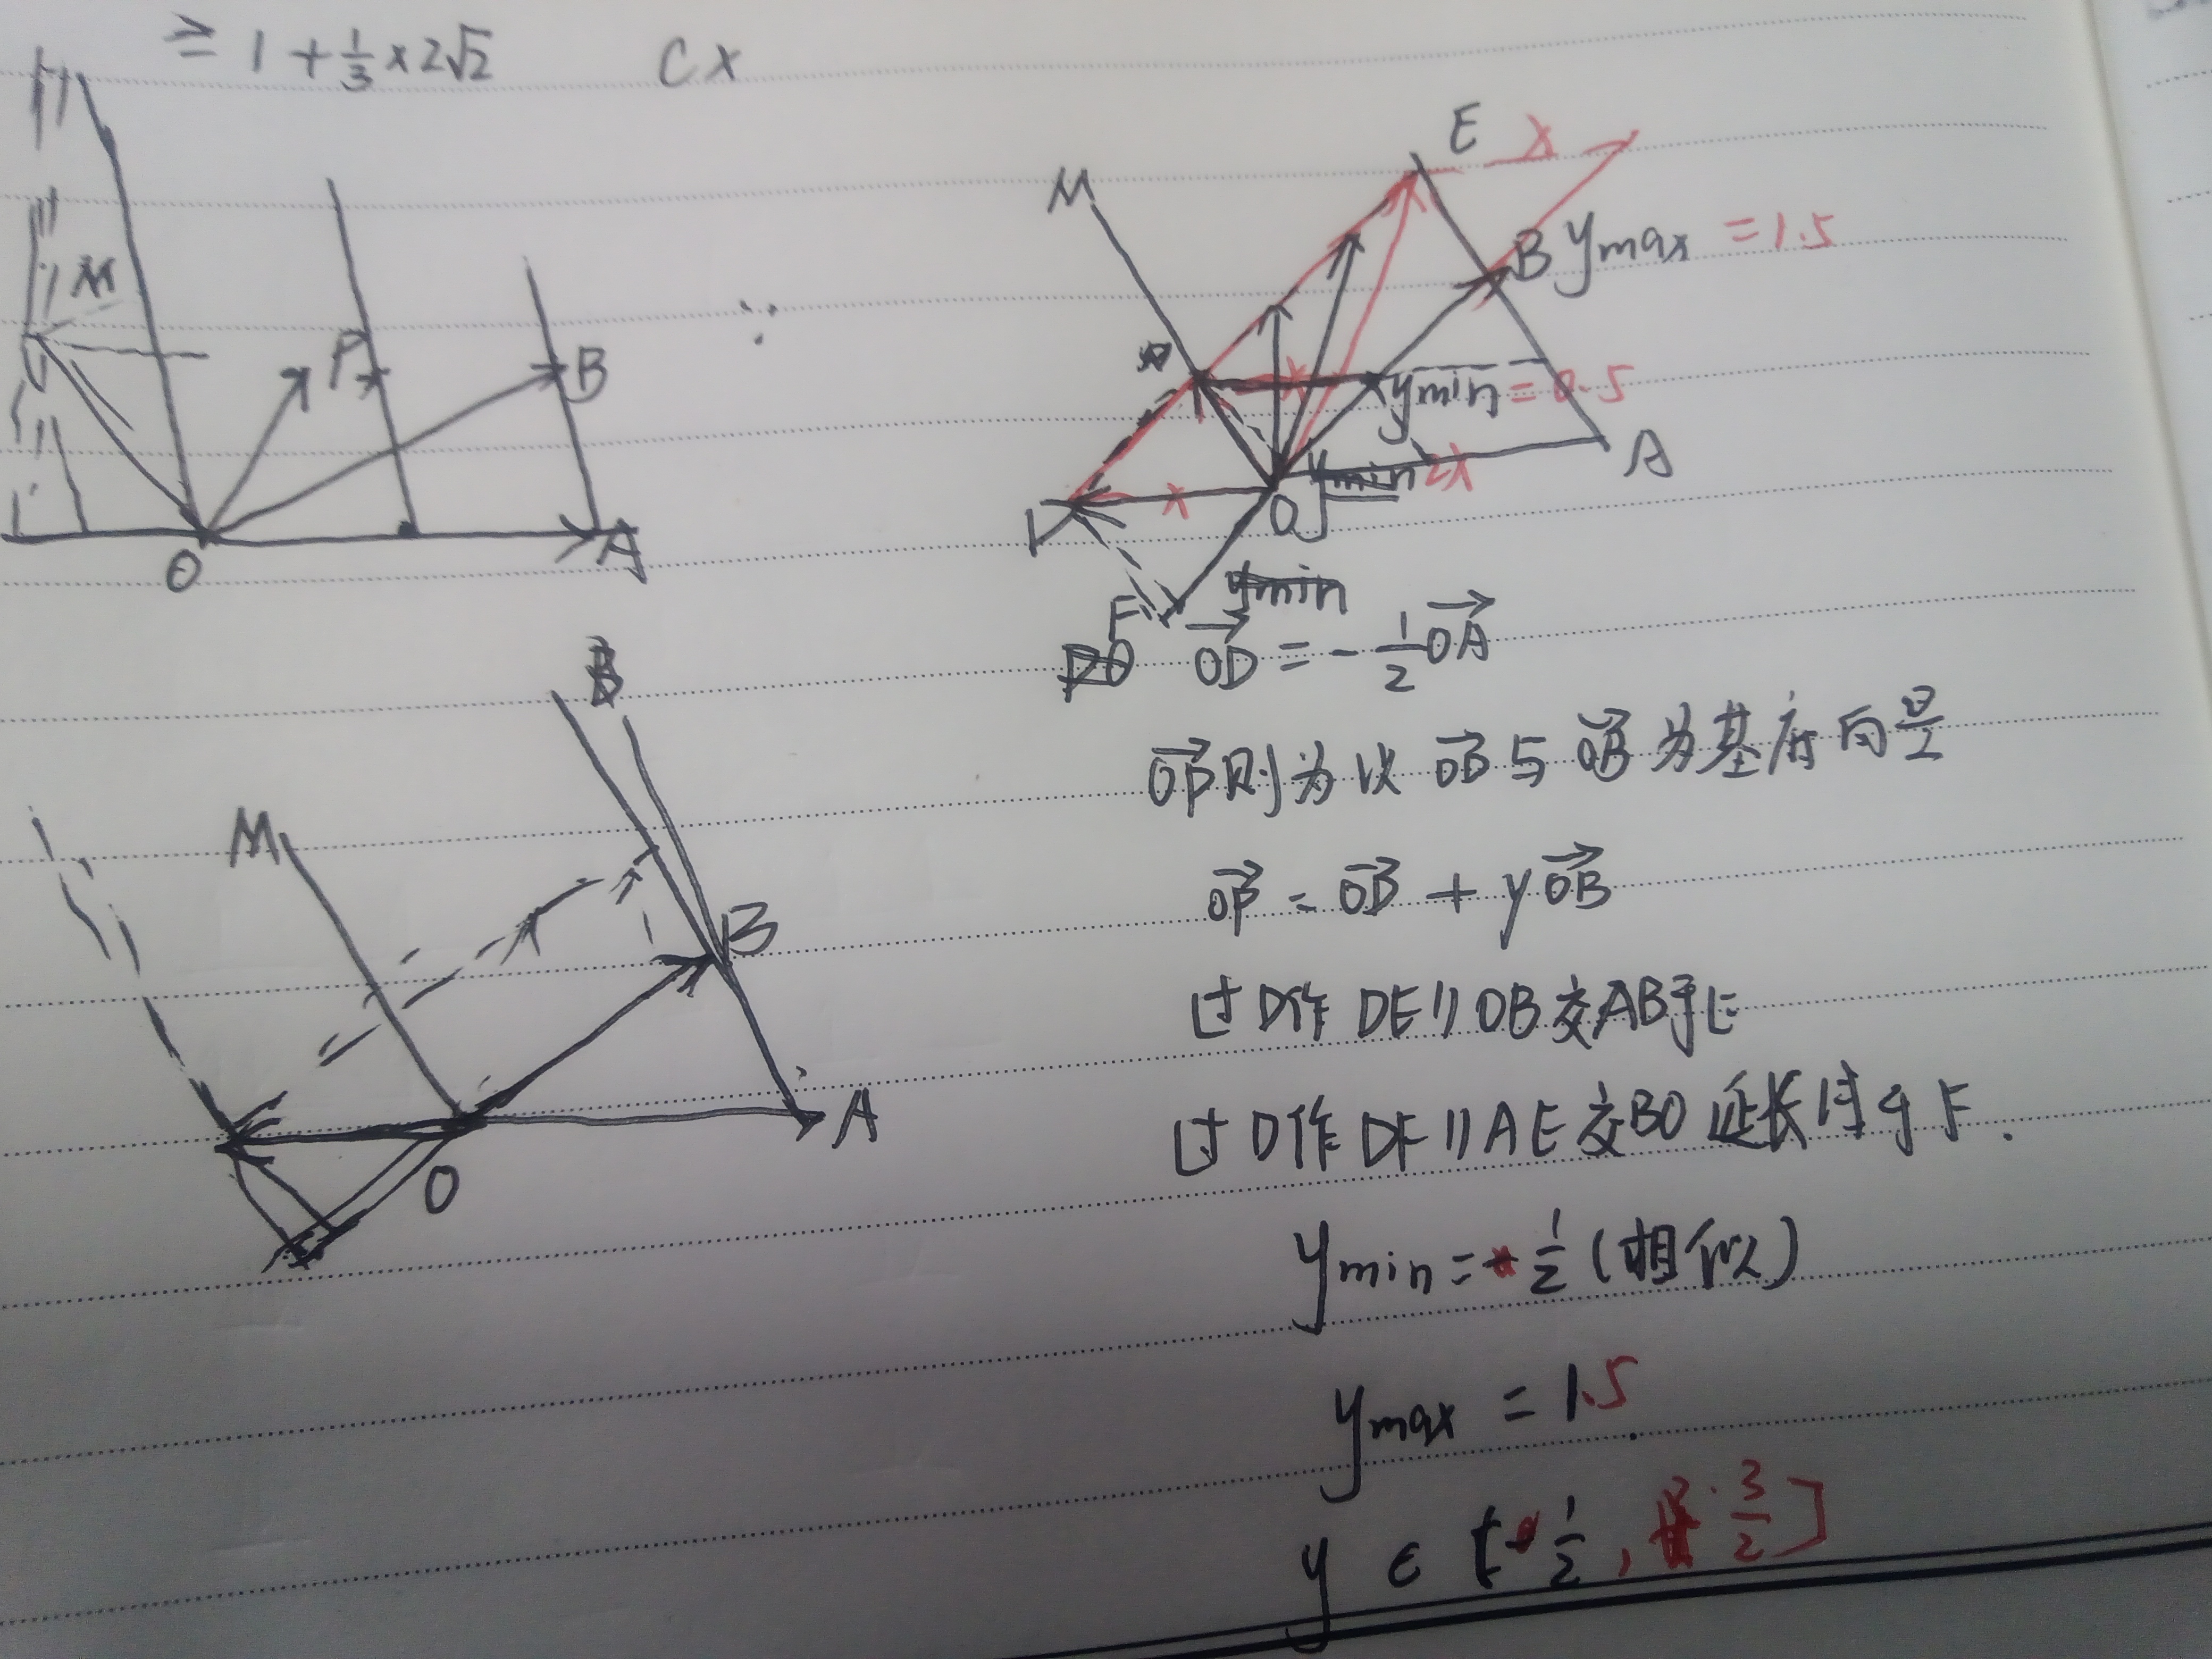 = 1 + 1/3 × 2√2 C x
M
P
B
O
A
M
E x
B ymax = 1.5
x
ymin = 0.5
D x O ymin 2x A
F ymin
OD = - 1/2 OA
OP则为以 OD 与 OB 为基底向量
OP = OD + yOB
过D作 DE // OB 交AB于E
过D作 DF // AE 交BO 延长线于F.
ymin = 1/2 (相似)
ymax = 1.5
y ∈ [ 1/2 , 3/2 ]
B
M
B
O
A